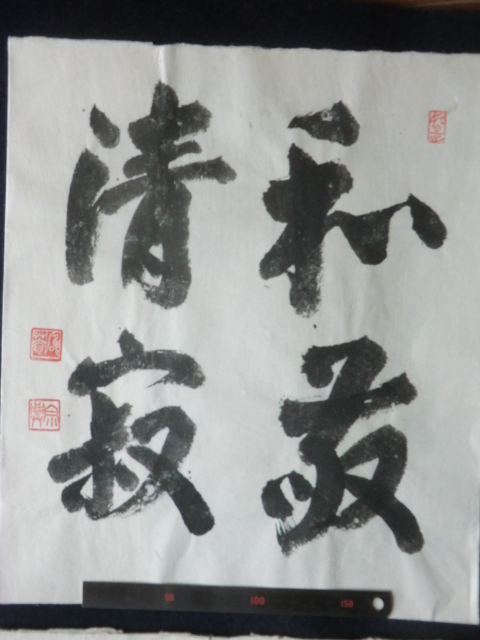 和敬
清寂
50
100
150